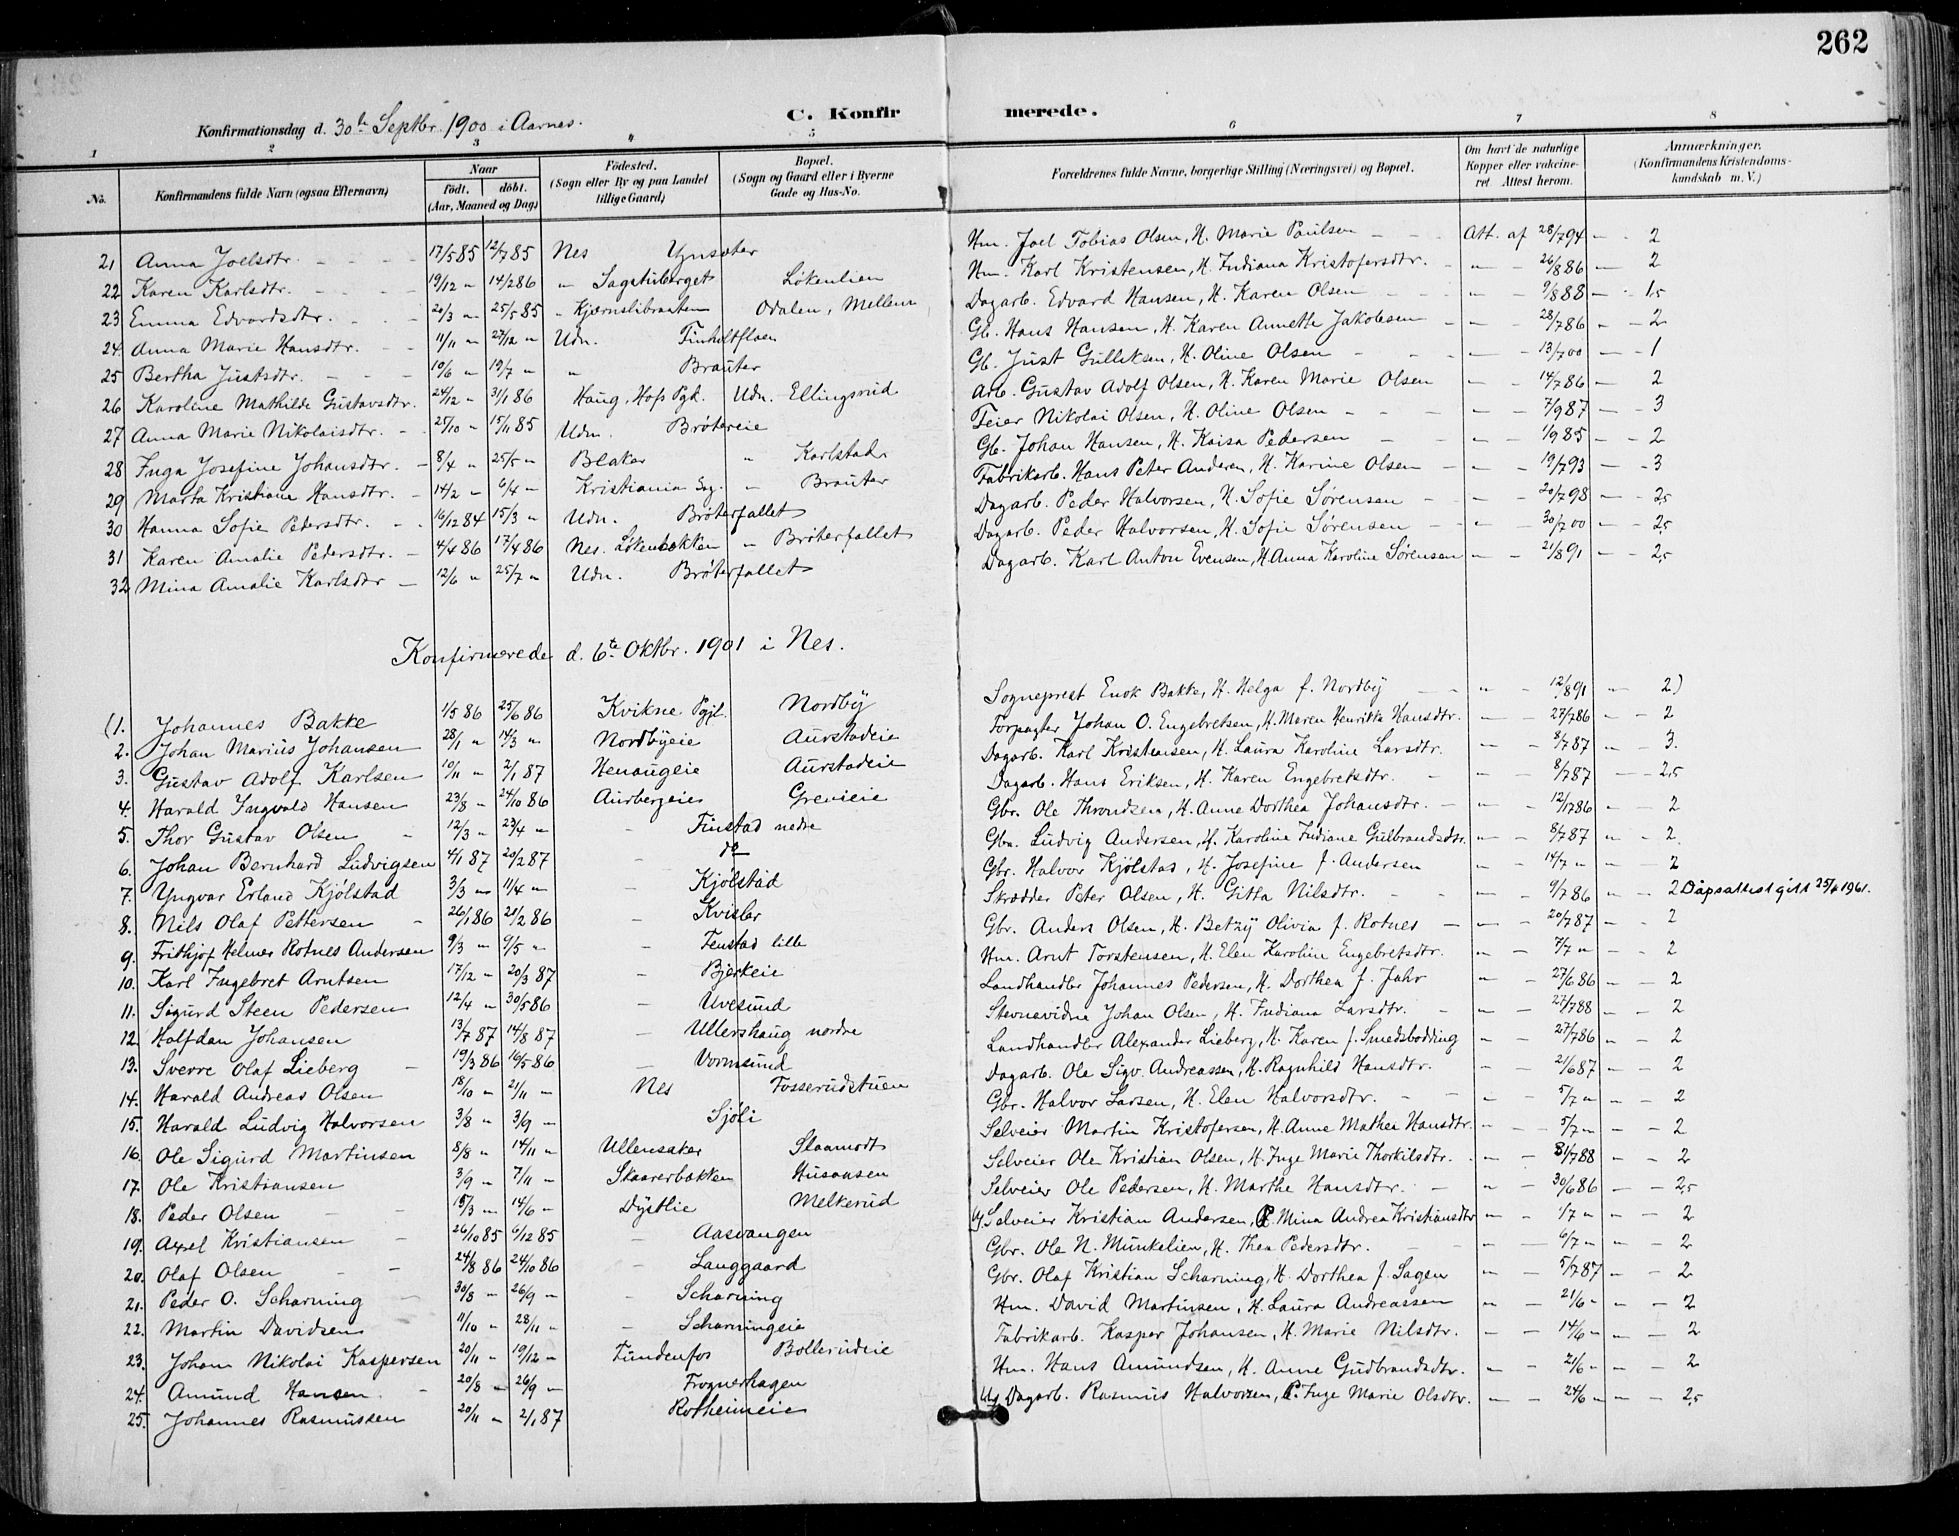 262
C. Konfirmerede.
Konfirmationsdag d. 30te Septbr. 1900 i Aarnes.
1 2 3 4 5 6 7 8
No. Konfirmandens fulde Navn (ogsaa Efternavn) Naar født. døbt. (Aar, Maaned og Dag) Fødested. (Sogn eller By og paa Landet tillige Gaard) Bopæl. (Sogn og Gaard eller i Byerne Gade og Hus-No. Forældrenes fulde Navne, borgerlige Stilling (Næringsvei) og Bopæl. Om havt de naturlige Kopper eller vakcineret. Attest herom. Anmærkninger. (Konfirmandens Kristendomskundskab m. V.)
21 Anna Joelsdtr. 17/5 85 12/7 85 Nes Hm. Joel Tobias Olsen, H. Marie Paulsen Att. af 28/7 94 2
22 Karen Karlsdtr. 19/12 " 14/2 86 " Sagstuberget Løkenlien Hm. Karl Kristensen, H. Indiana Kristofersdtr. " 26/8 86 2
23 Emma Edvardsdtr. 20/3 " 25/5 85 " Kjernslibraaten Odalen, Mellem Dagarb. Edvard Hansen, H. Karen Olsen " 9/8 88 1,5
24. Anna Marie Hansdtr. 11/11 " 27/12 " Udn. Finholtfloen Gb. Hans Hansen, H. Karen Annette Jakobsen " 28/7 86 2
25 Bertha Justsdtr. 10/6 " 19/7 " " Brauter Gb. Just Gulliksen, H. Oline Olsen " 13/7 00 1
26 Karoline Mathilde Gustavsdtr. 24/12 " 31/1 86 Haug, Hof Pgk. Udn. Ellingsrud Arb. Gustav Adolf Olsen, H. Karen Marie Olsen " 14/7 86 2
27 Anna Marie Nikolaisdtr. 25/10 " 15/11 85 Udn. Brøtereie Feier Nikolai Olsen, H. Oline Olsen " 7/9 87 3
28 Inga Josefine Johansdtr. 8/4 " 25/5 " Blaker " Karlstad Gb. Johan Hansen, H. Kaisa Pedersen " 1/9 85 2
29 Marta Kristiane Hansdtr. 14/2 " 6/4 " Kristiania " Brauter Fabrikarb. Hans Peter Andersen, H. Karine Olsen " 19/7 93 3
30 Hanna Sofie Pedersdtr. 16/12 84 15/3 " Udn. Brøterfallet Dagarb. Peder Halvorsen, H. Sofie Sørensen " 20/7 98 2,5
31 Karen Amalie Pedersdtr. 4/4 86 17/4 86 Nes. Løkenbakken " Brøterfallet Dagarb. Peder Halvorsen, H. Sofie Sørensen " 30/7 00 2,5
32 Mina Amalie Karlsdtr 12/6 " 25/7 " Udn. Brøterfallet Dagarb. Karl Anton Evensen, H. Anna Karoline Sørensen " 21/8 91 2,5
Konfirmerede d. 6te Oktbr. 1901 i Nes.
(1. Johannes Bakke 1/5 86 25/6 86 Kvikne Pgjl. Nordby Sogneprest Enok Bakke, H. Helga f. Nordby " 12/8 91 2)
2. Johan Marius Johansen 28/1 " 14/3 " Nordbyeie Aurstadeie Forpagter Johan O. Engebretsen, H. Maren Henrikke Hansdtr. " 27/7 86 2
3. Gustav Adolf Karlsen 10/11 " 2/1 87 Henaugeie Aurstadeie Dagarb. Karl Kristensen, H. Laura Karoline Larsdtr. " 8/7 87 3.
4. Harald Ingvald Hansen 23/8 " 24/10 86 Aurbergeie Grevieie Dagarb. Hans Eriksen, H. Karen Engebretsdtr. " 8/7 87 2,5
5. Thor Gustav Olsen 12/3 " 23/4 " Finstad nedre Gbr. Ole Throndsen, H. Anne Dorthea Johansdtr. " 12/7 86 2
6. Johan Bernhard Ludvigsen 4/1 87 20/2 87 do Gbr. Ludvig Andersen, H. Karoline Indiane Gulbrandsdtr. " 8/7 87 2
7. Yngvar Erland Kjølstad 3/3 " 11/4 " Kjølstad Gbr. Halvor Kjølstad, H. Josefine f. Andersen " 14/7 " 2
8. Nils Olaf Pettersen 26/1 86 21/2 86 Kvisler Skrædder Peter Olsen, H. Gitta Nilsdtr. " 9/7 86 2 Dåpsattest gitt 25/4 1961.
9. Frithjof Helmer Rotnes Andersen 9/3 " 9/5 " Fenstad lille Gbr. Anders Olsen, H. Betzy Olivia f. Rotnes 20/7 87 2
10. Karl Ingebret Arntsen 17/12 " 20/3 87 Bjerkeie Hm. Arnt Torstensen, H. Elen Karoline Engebretsdtr. " 7/7 " 2
11. Sigurd Steen Pedersen 12/4 " 30/5 86 Uvesund Landhandler Johannes Pedersen, H. Dorthea f. Jahr " 27/6 86 2
12. Halfdan Johansen 13/7 87 14/8 87 Ullershaug nordre Stevnevidne Johan Olsen, H. Indiana Larsdtr. " 27/7 88 2
13. Sverre Olaf Lieberg 19/3 86 16/5 86 Vormsund Landhandler Alexander Lieberg, H. Karen f. Smedsbodding " 27/7 86 2
14. Harald Andreas Olsen 18/10 " 21/11 " Nes Fosserudstuen Dagarb. Ole Sigv. Andreassen, H. Ragnhild Hansdtr. " 21/6 87 2
15. Harald Ludvig Halvorsen 3/8 " 3/9 " Sjøli Gbr. Halvor Larsen, H. Elen Halvorsdtr. " 5/7 " 2
16. Ole Sigurd Martinsen 8/8 " 14/11 " Ullensaker Slaamodt Selveier Martin Kristofersen, H. Anne Mathea Hansdtr. " 5/7 " 2
17. Ole Kristiansen 3/9 " 7/11 " Skaarerbakken Husaasen Selveier Ole Kristian Olsen, H. Inge Marie Thorkilsdtr. " 31/7 88 2
18. Peder Olsen 15/3 " 14/6 " Dystlie Melkerud Selveier Ole Pedersen, H. Marthe Hansdtr. " 30/6 86 2,5
19. Axel Kristiansen 26/10 85 6/12 85 Aasvangen Ug. Selveier Kristian Andersen, P. Mina Andrea Kristiansdtr " 1/7 " 2
20. Olaf Olsen 24/8 86 24/10 86 Langgaard Gbr. Ole N. Munkelien, H. Thea Pedersdtr. 6/7 " 2
21. Peder O. Scharning 30/8 " 26/9 " Scharning Gbr. Olaf Kristian Scharning, H. Dorthea f. Sagen " 5/7 87 2
22. Martin Davidsen 11/10 " 28/11 " Scharningeie Hm. David Martinsen, H. Laura Andreassen " 21/6 " 2
23. Johan Nikolai Kaspersen 20/11 " 19/12 " Fundenfos Bollerudeie Fabrikarb. Kasper Johansen, H. Marie Nilsdtr. 14/6 " 2
24. Amund Hansen 20/8 " 26/9 " Frognerhagen Hm. Hans Amundsen, H. Anne Gudbrandsdtr. " 21/6 " 2
25. Johannes Rasmussen 20/11 " 2/1 87 Rotheimeie Ug. Dagarb. Rasmus Halvorsen, P. Inge Marie Olsdtr. " 24/6 " 2,5